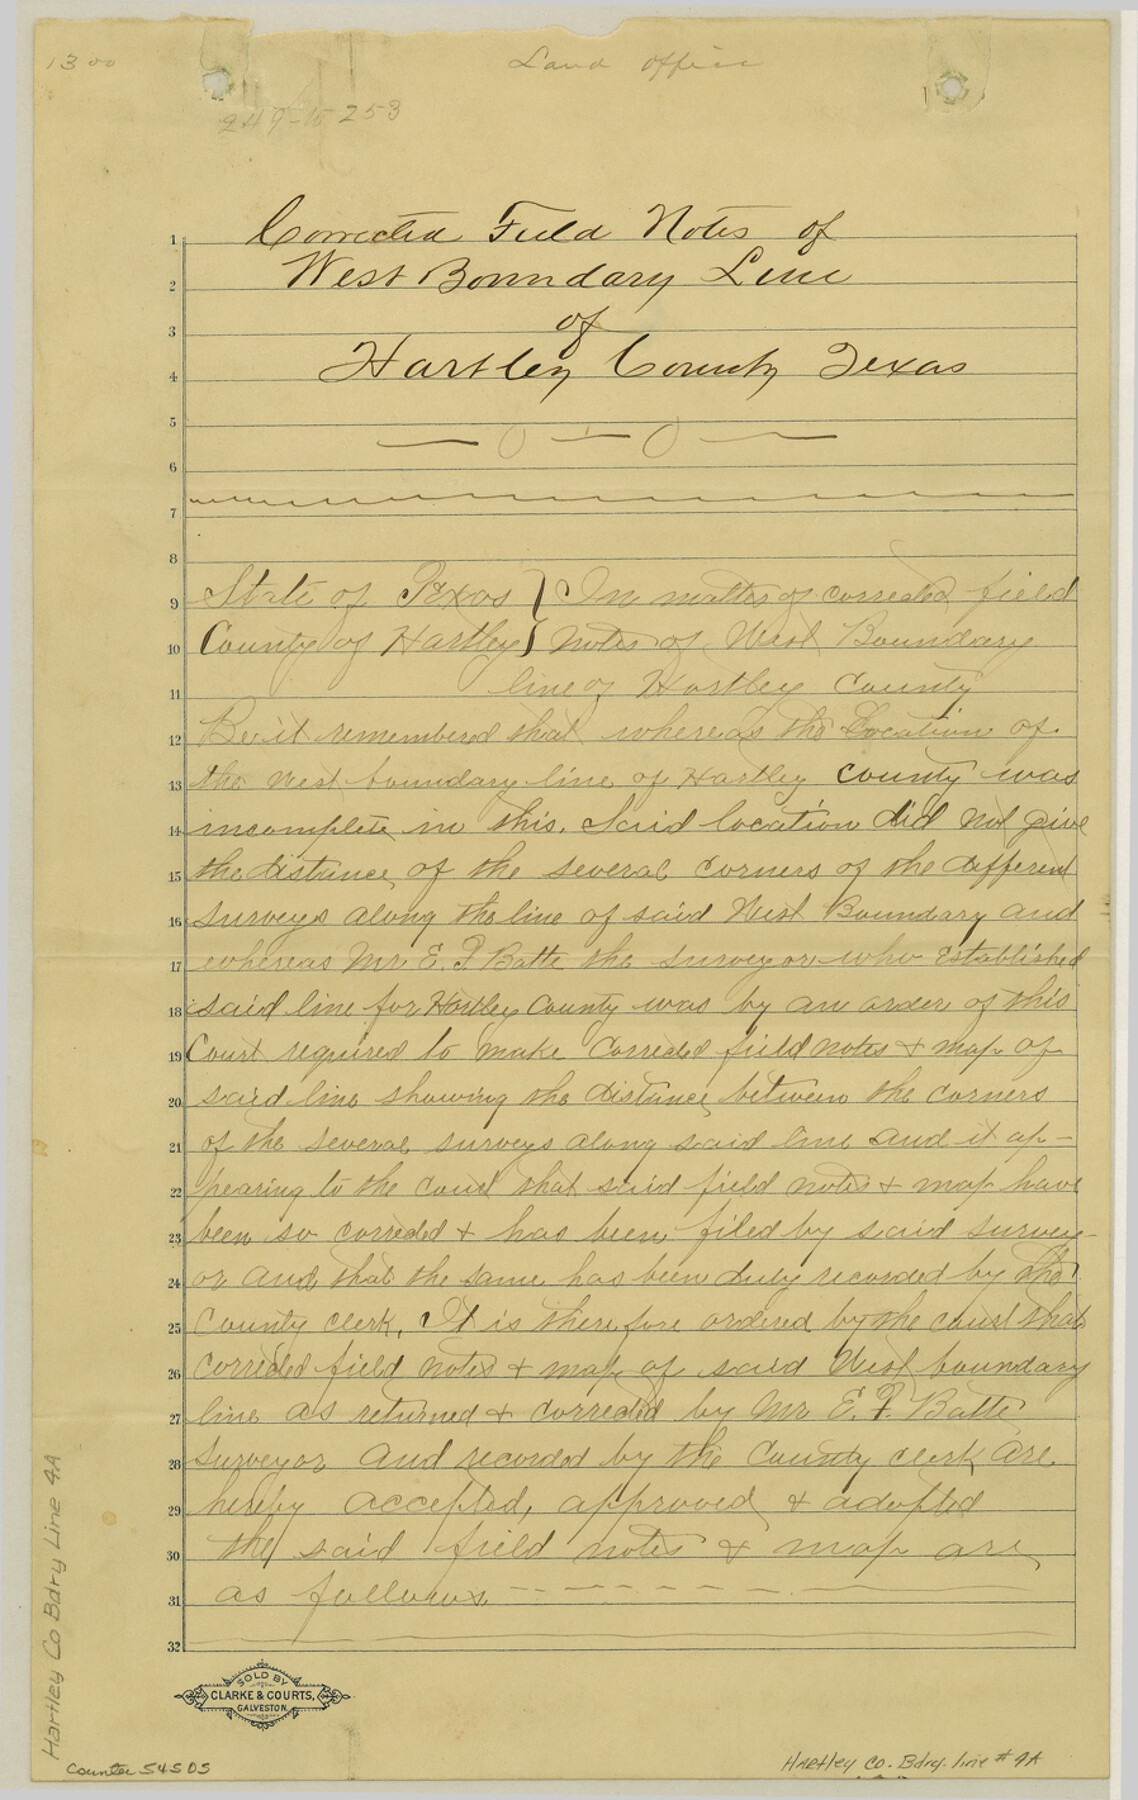 1300
Land Office
249-to 253
Corrected Field Notes of
West Boundary Line
of
Hartley County Texas
State of Texas } In matter of corrected field
County of Hartley } notes of West Boundary
line of Hartley County
Be it remembered that whereas the Location of
the West boundary line of Hartley County was
incomplete in this. Said location did not give
the distance of the several corners of the different
surveys along the line of said West Boundary and
whereas Mr. E. P. Batte the surveyor who Established
said line for Hartley County was by an order of this
Court required to make Corrected field notes & map of
said line showing the distance between the corners
of the several surveys along said line and it ap-
pearing to the Court that said field notes & map have
been so corrected & has been filed by said survey-
or and that the same has been duly recorded by the
County clerk. It is therefore ordered by the court that
corrected field notes & map of said West boundary
line as returned & corrected by Mr E. P. Batte
surveyor and recorded by the County clerk are
hereby accepted, approved & adopted
the said field notes & map are
as follows
1
2
3
4
5
6
7
8
9
10
11
12
13
14
15
16
17
18
19
20
21
22
23
24
25
26
27
28
29
30
31
32
SOLD BY
CLARKE & COURTS,
GALVESTON.
Hartley Co Bdry Line 4A
Counter 54505
Hartley Co. Bdry. line #4A